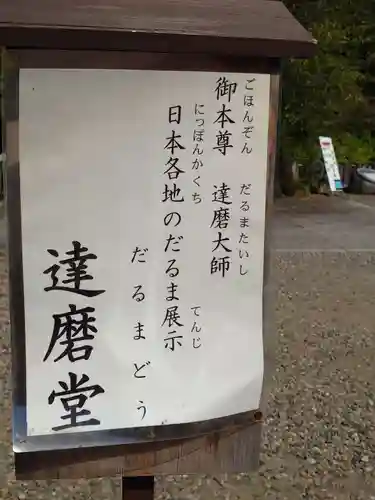 ごほんぞん　だるまたいし
御本尊　達磨大師
にっぽんかくち　てんじ
日本各地のだるま展示
だるまどう
達磨堂